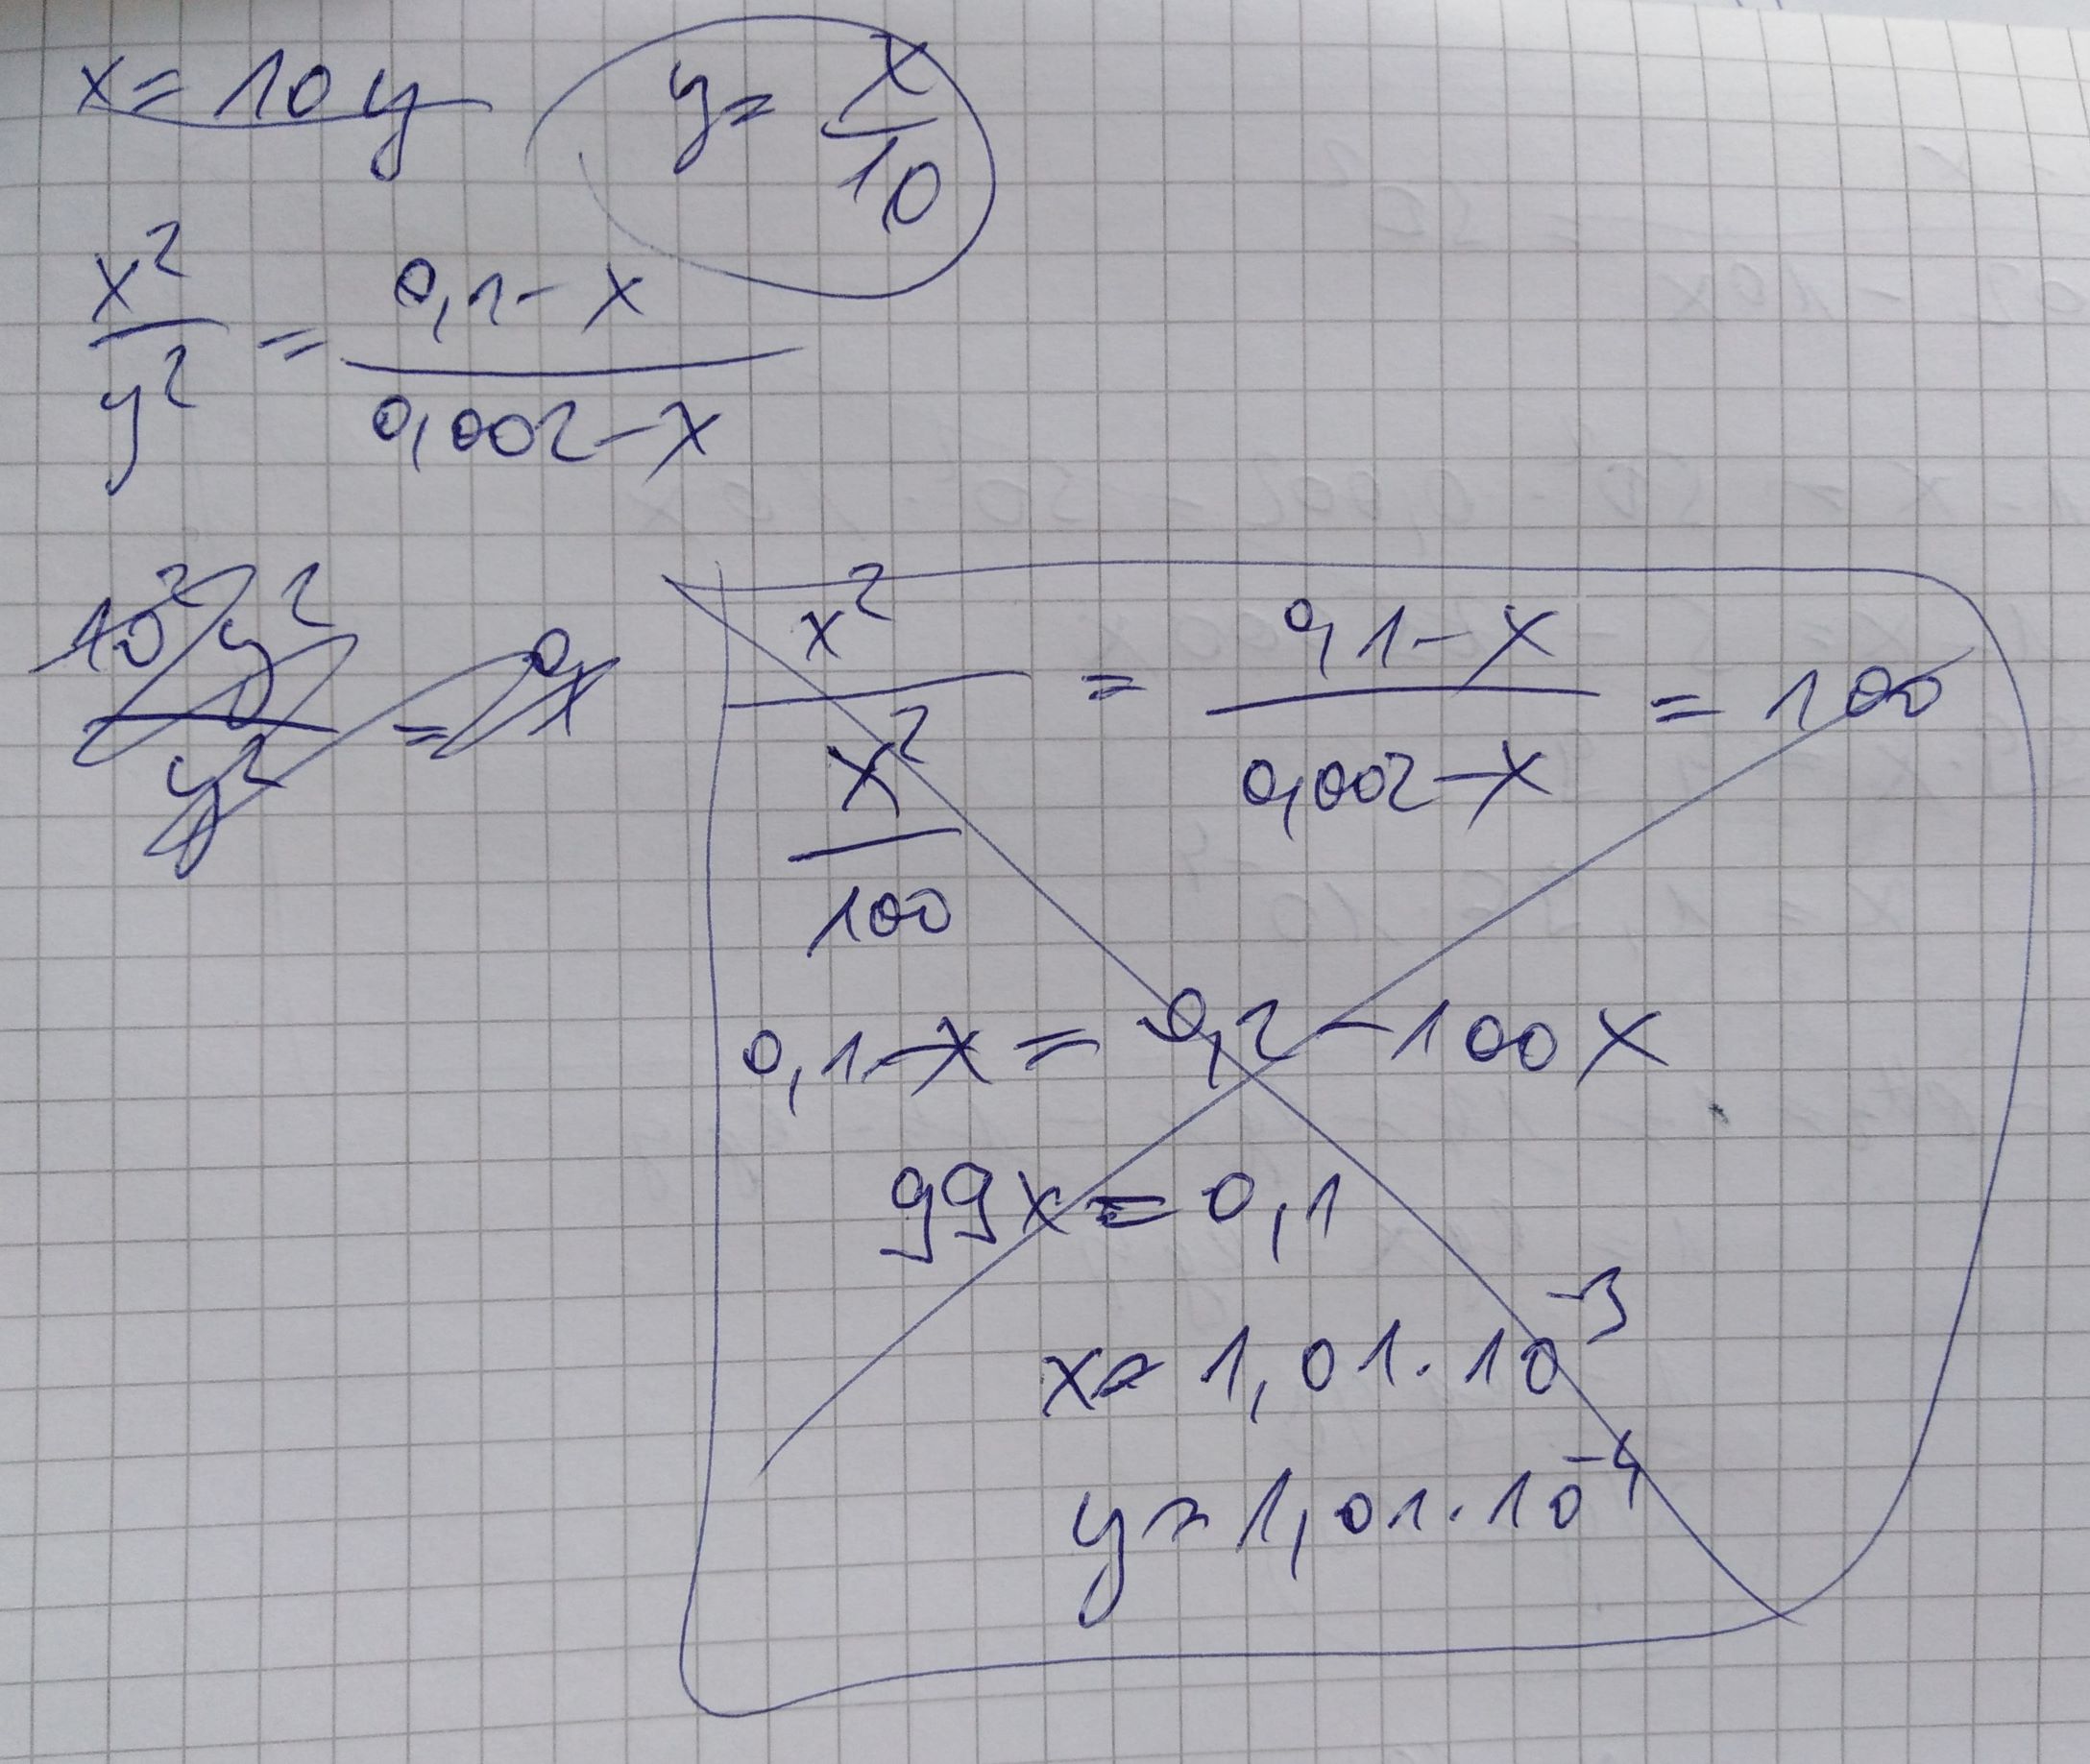 x = 10 y
y = x/10
x²/y² = (0,1 - x)/(0,002 - x)
10² y²/y² =
x²/(x²/100) = (0,1 - x)/(0,002 - x) = 100
0,1 - x = 0,2 - 100 x
99x = 0,1
x = 1,01 · 10⁻³
y = 1,01 · 10⁻⁴